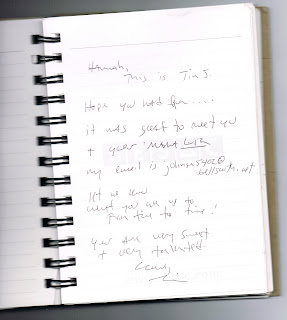 Hannah,
This is Tim J.
Hope you had fun....
it was great to meet you
+ your MAMA
my email is
bellsouth.net
let us know
what you are up to
from time to time!
You are very sweet
+ very talented!